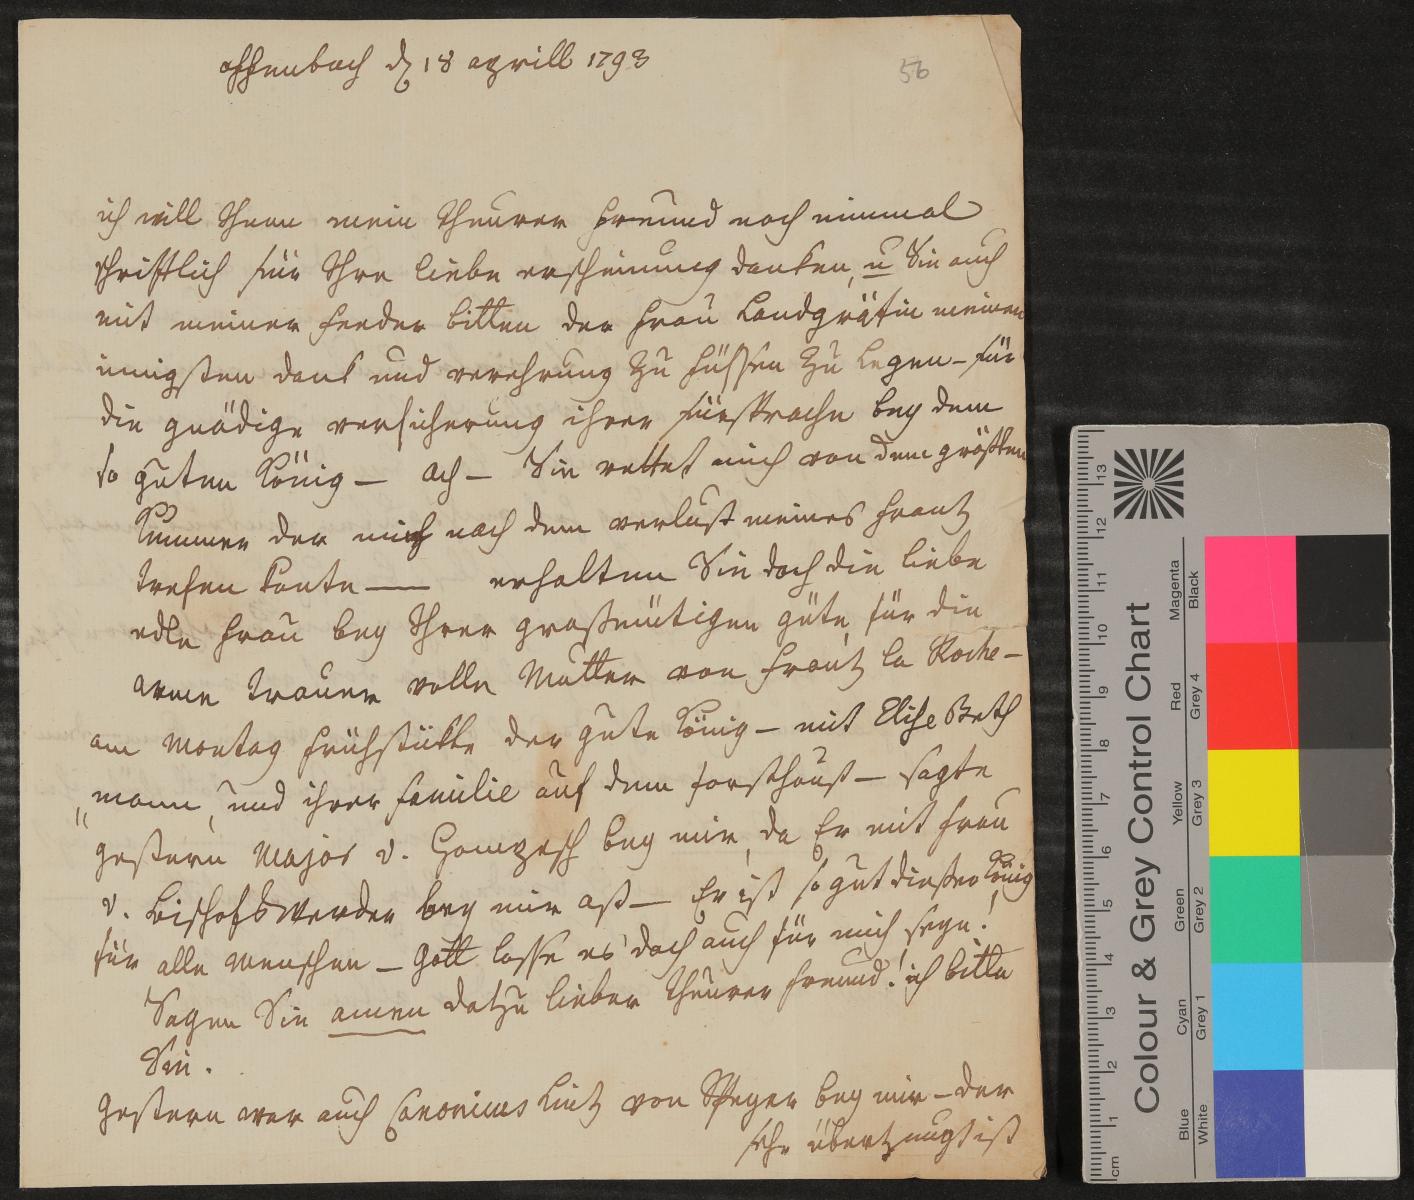 offenbach d 18 aprill 1793
56
ich will Ihnen mein theurer Freund noch einmal
schriftlich für Ihre liebe erscheinung danken, u Sie auch
mit meiner Feeder bitten der Frau Landgräfin meinen
innigsten dank und verehrung zu Füssen zu legen – für
die gnädige versicherung ihrer fürsprache bey dem
so guten König – ach – Sie rettet mich von dem grösten
Kummer der mich nach dem verlust meines Frantz
trefen konte — erhalten Sie doch die liebe
edle Frau bey Ihrer großmütigen güte, für die
arme trauer volle Mutter von Frantz la Roche –
am Montag Frühstükte der gute König – mit Elise Beth
„mann, und ihrer familie auf dem forsthauß – sagte
gestern Major v. bey mir, da Er mit Frau
v. Bischofswerder bey mir aß – Er ist so gut dießer König
für alle Menschen – Gott lasse es doch auch für mich seyn!
Sagen Sie amen datzu lieber theurer Freund! ich bitte
Sie.
Gestern war auch Canonicus Lintz von Speyer bey mir – der
sehr übertzeugt ist
Colour & Grey Control Chart
Blue Cyan Green Yellow Red Magenta
White Grey 1 Grey 2 Grey 3 Grey 4 Black
cm 1 2 3 4 5 6 7 8 9 10 11 12 13